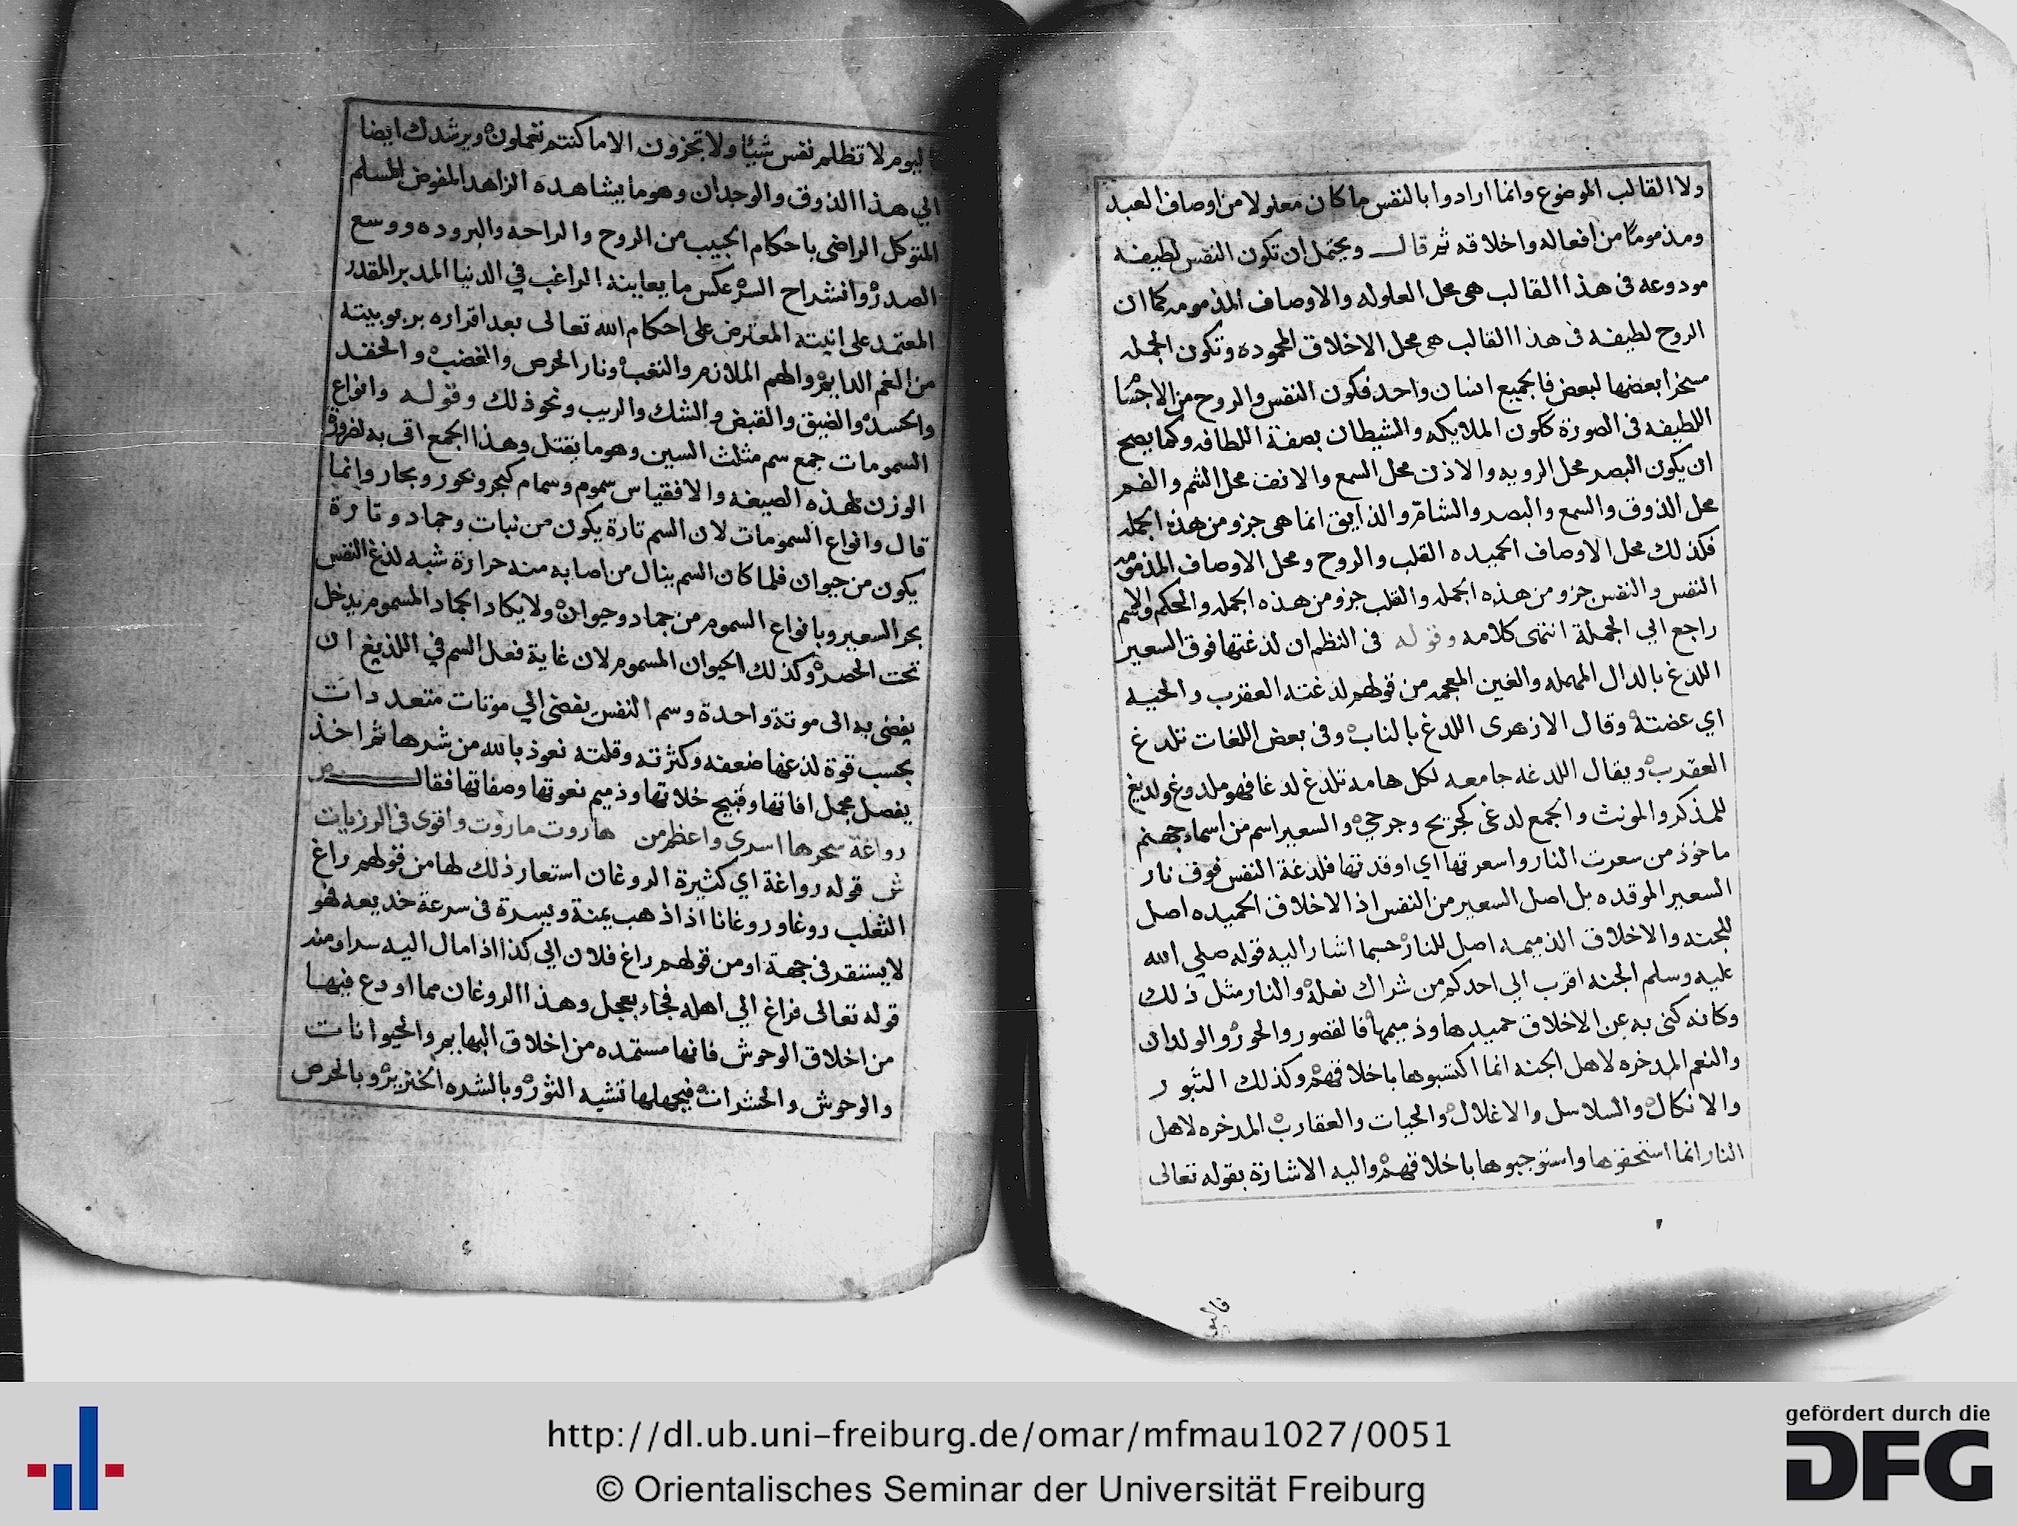 ولا القالب الموضوع وانما ارادوا بالنفس ما كان معلولا من اوصاف العبد
ومذموما من افعاله واخلاقه ثم قال ويحتمل ان تكون النفس لطيفه
مودوعه فى هذا القالب هى محل العلوله والاوصاف المذمومه كما ان
الروح لطيفه فى هذا القالب هى محل الاخلاق المحموده وتكون الجمله
مسخرا بعضها لبعض فالجميع انسان واحد فكون النفس والروح من الاجسا
اللطيفه فى الصورة ككون الملايكه والشيطان بصفة اللطافه وكما يصح
ان يكون البصر محل الرويه والاذن محل السمع والانف محل الشم والفم
محل الذوق والسمع والبصر والشام والذايق انما هى جزو من هذه الجمله
فكذلك محل الاوصاف الحميده القلب والروح ومحل الاوصاف المذمومه
النفس والنفس جزو من هذه الجمله والقلب جزو من هذه الجمله والحكم والاسم
راجع الى الجملة انتهى كلامه وقوله فى النظم ان لدغتها فوق السعير
اللدغ بالدال المهمله والغين المعجمه من قولهم لدغته العقرب والحيه
اي عضته وقال الازهرى اللدغ بالناب وفى بعض اللغات تلدغ
العقرب ويقال اللدغه جامعه لكل هامه تلدغ لدغا فهو ملدوغ ولديغ
للمذكر والمونث والجمع لدغى كجريح وجرحى والسعير اسم من اسماء جهنم
ماخوذ من سعرت النار واسعرتها اي اوقدتها فلدغة النفس فوق نار
السعير الموقده بل اصل السعير من النفس اذ الاخلاق الحميده اصل
للجنه والاخلاق الذميمه اصل للنار حسبما اشار اليه قوله صلي الله
عليه وسلم الجنه اقرب الي احدكم من شراك نعله والنار مثل ذلك
وكانه كنى به عن الاخلاق حميدها وذميمها فالقصور والحور والولدان
والنعم المدخره لاهل الجنه انما اكتسبوها باخلاقهم وكذلك الثبور
والانكال والسلاسل والاغلال والحيات والعقارب المدخره لاهل
النار انما استحقوها واستوجبوها باخلاقهم واليه الاشارة بقوله تعالى
فاليو
فاليوم لا تظلم نفس شيئا ولا تجزون الا ما كنتم تعملون ويرشدك ايضا
الي هذا الذوق والوجدان وهو ما يشاهده الزاهد المفوض المسلم
المتوكل الراضى باحكام الحبيب من الروح والراحه والبروده ووسع
الصدر وانشراح السر عكس ما يعاينه الراغب في الدنيا المدبر المقدر
المعتمد على انيته المعترض على احكام الله تعالى بعد اقراره بربوبيته
من الغم الدايم والهم الملازم والتعب ونار الحرص والغضب والحقد
والحسد والضيق والقبض والشك والريب ونحو ذلك وقوله وانواع
السمومات جمع سم مثلث السين وهو ما يقتل وهذا الجمع اتى به لضرورة
الوزن لهذه الصيغه والا فقياس سموم وسمام كبحر وبحور وبحار وانما
قال وانواع السمومات لان السم تارة يكون من نبات وجماد وتارة
يكون من حيوان فلما كان السم ينال من اصابه منه حرارة شبه لدغ النفس
بحر السعير وبانواع السموم من جماد وحيوان ولا يكاد الجماد المسموم يدخل
تحت الحصر وكذلك الحيوان المسموم لان غاية فعل السم في اللديغ ان
يفضى به الى موتة واحدة وسم النفس يفضى الي موتات متعددات
بحسب قوة لدغها ضعفه وكثرته وقلته نعوذ بالله من شرها ثم اخذ
يفصل مجمل افاتها وقبيح خلاتها وذميم نعوتها وصفاتها فقال ص
رواغة سحرها اسرى واعظم من هاروت ماروت واقوى فى الرزيات
ش قوله رواغة اي كثيرة الروغان استعار ذلك لها من قولهم راغ
الثعلب روغا وروغانا اذا ذهب يمنة ويسرة فى سرعة خديعه فهو
لا يستقر فى جهة او من قولهم راغ فلان الي كذا اذا مال اليه سرا ومنه
قوله تعالى فراغ الي اهله فجاء بعجل وهذا الروغان مما اودع فيها
من اخلاق الوحوش فانها مستمده من اخلاق البهايم والحيوانات
والوحوش والحشرات فبجهلها تشبه الثور وبالشره الخنزير وبالحرص
http://dl.ub.uni-freiburg.de/omar/mfmau1027/0051
© Orientalisches Seminar der Universität Freiburg
gefördert durch die
DFG